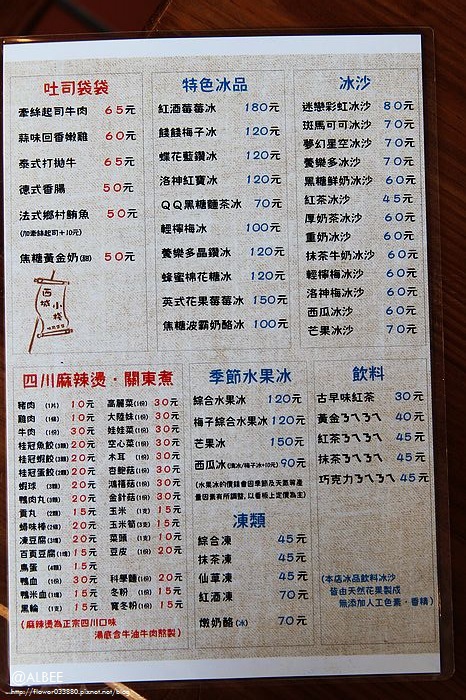 吐司袋袋
牽絲起司牛肉 65元
蒜味回香嫩雞 60元
泰式打拋牛 65元
德式香腸 50元
法式鄉村鮪魚 50元
(加牽絲起司+10元)
焦糖黃金奶(甜) 50元
西城小棧
特色冰品
紅酒莓莓冰 180元
餞餞梅子冰 120元
蝶花藍鑽冰 120元
洛神紅寶冰 120元
QQ黑糖麵茶冰 70元
輕檸梅冰 100元
養樂多晶鑽冰 120元
蜂蜜棉花糖冰 120元
英式花果莓莓冰 150元
焦糖波霸奶酪冰 100元
冰沙
迷戀彩虹冰沙 80元
斑馬可可冰沙 70元
夢幻星空冰沙 70元
養樂多冰沙 70元
黑糖鮮奶冰沙 60元
紅茶冰沙 45元
厚奶茶冰沙 60元
重奶冰沙 60元
抹茶牛奶冰沙 60元
輕檸梅冰沙 60元
洛神梅冰沙 60元
西瓜冰沙 60元
芒果冰沙 70元
四川麻辣燙・關東煮
豬肉 (1片) 10元
雞肉 (1條) 10元
牛肉 (1份) 30元
桂冠魚餃(3顆) 20元
桂冠蝦餃(3顆) 20元
桂冠蛋餃(3顆) 20元
蝦球 (3顆) 20元
鴨肉丸(3顆) 20元
貢丸 (2顆) 15元
蟳味棒(2條) 20元
凍豆腐(3塊) 20元
百頁豆腐(1塊) 15元
鳥蛋 (4顆) 15元
鴨血 (1份) 30元
鴨米血(1塊) 15元
黑輪 (1支) 15元
高麗菜(1份) 30元
大陸妹(1份) 30元
娃娃菜(1份) 30元
空心菜(1份) 30元
木耳 (1份) 30元
杏鮑菇(1份) 30元
鴻禧菇(1份) 30元
金針菇(1份) 30元
玉米 (1支) 15元
玉米筍(3支) 15元
菜頭 (1份) 10元
豆皮 (1份) 20元
科學麵(1份) 20元
冬粉 (1份) 15元
寬冬粉(1份) 15元
(麻辣燙為正宗四川口味
湯底含牛油牛肉熬製)
季節水果冰
綜合水果冰 120元
梅子綜合水果冰 120元
芒果冰 150元
西瓜冰(清冰/梅子冰+10元) 90元
(水果冰的價錢會因季節及天氣等產
量因素有所調整,以看板上定價為主)
凍類
綜合凍 45元
抹茶凍 45元
仙草凍 45元
紅酒凍 70元
燉奶酪(冰) 70元
飲料
古早味紅茶 30元
黃金ㄋㄟㄋㄟ 40元
紅茶ㄋㄟㄋㄟ 45元
抹茶ㄋㄟㄋㄟ 45元
巧克力ㄋㄟㄋㄟ 45元
(本店冰品飲料冰沙
皆由天然花果製成
無添加人工色素、香精)
@ALBEE
http://flower033880.pixnet.net/blog